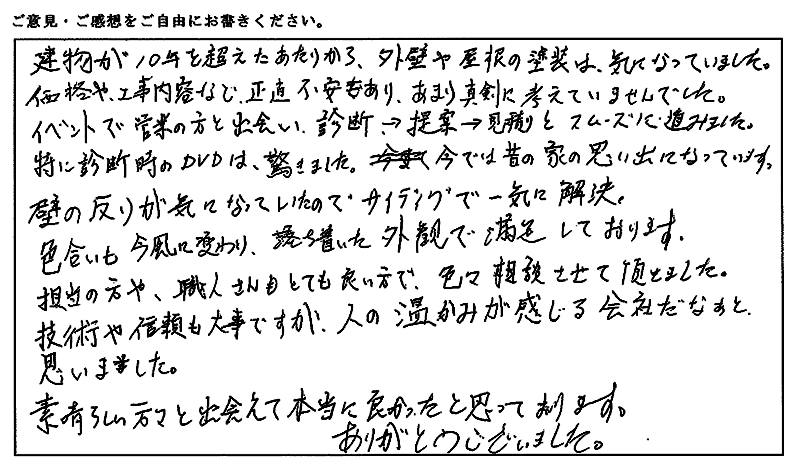 ご意見・ご感想をご自由にお書きください。
建物が10年を超えたあたりから、外壁や屋根の塗装は、気になっていました。
価格や、工事内容など、正直不安もあり、あまり真剣に考えていませんでした。
イベントで営業の方と出会い、診断→提案→見積りとスムーズに進みました。
特に診断時のDVDは、驚きました。今では昔の家の思い出になっています。
壁の反りが気になっていたのでサイディングで一気に解決。
色合いも今風に変わり、落ち着いた外観で満足しております。
担当の方や、職人さんもとても良い方で、色々相談させて頂きました。
技術や信頼も大事ですが、人の温かみが感じる会社だなぁと、
思いました。
素晴らしい方々と出会えて本当に良かったと思っております。
ありがとうございました。